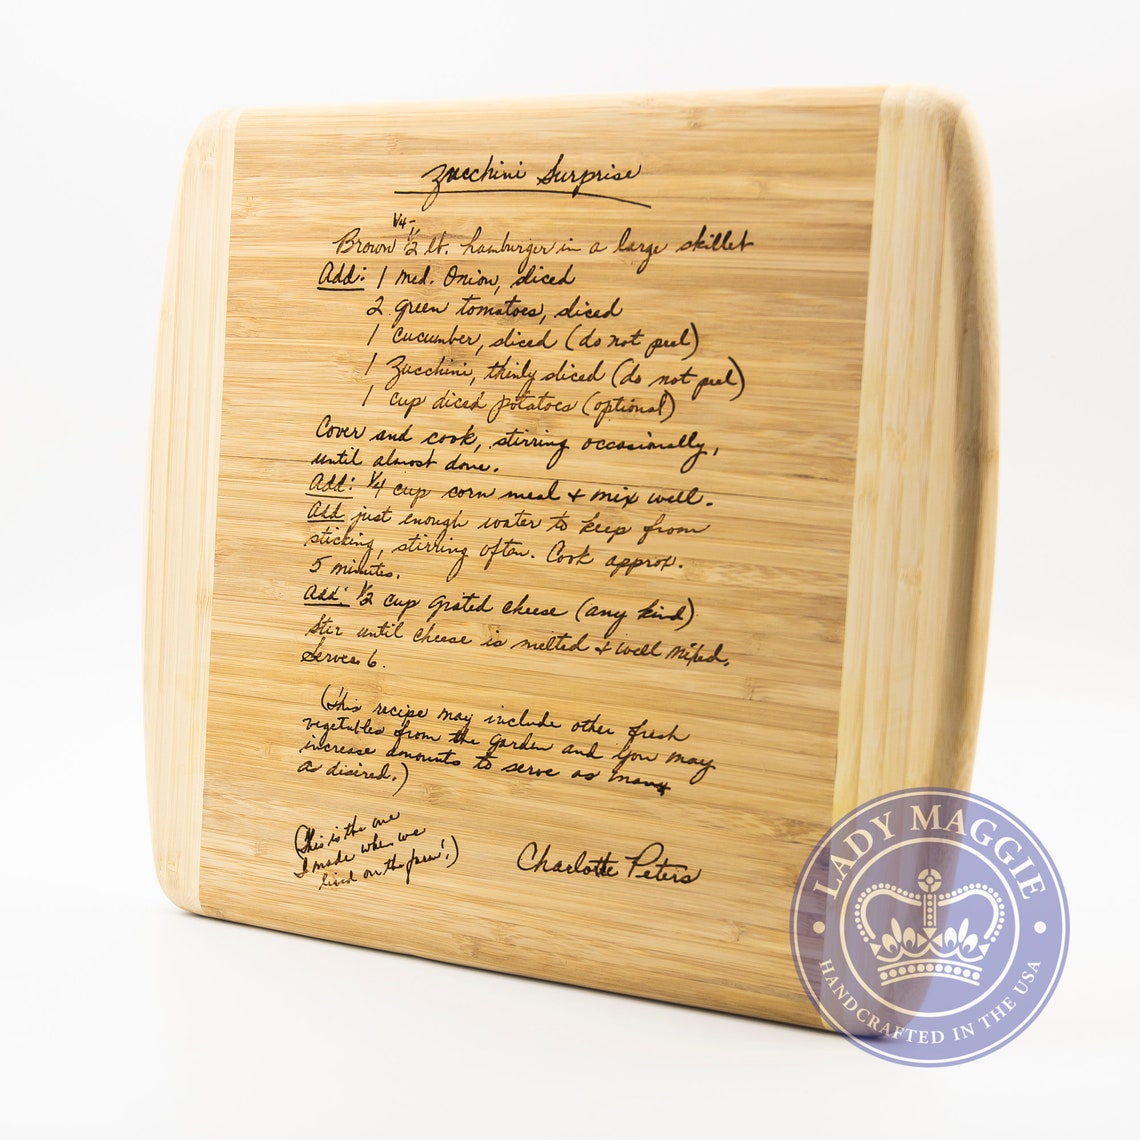 Zucchini Surprise
1/4-
Brown 1/2 lb. hamburger in a large skillet
Add: 1 med. Onion, sliced
2 green tomatoes, sliced
1 cucumber, sliced (do not peel)
1 Zucchini, thinly sliced (do not peel)
1 cup diced potatoes (optional)
Cover and cook, stirring occasionally,
until almost done.
Add: 1/4 cup corn meal & mix well.
Add just enough water to keep from
sticking, stirring often. Cook approx.
5 minutes.
Add: 1/2 cup grated cheese (any kind)
Stir until cheese is melted & well mixed.
Serves 6.
(This recipe may include other fresh
vegetables from the garden and you may
increase amounts to serve as many
as disired.)
(This is the one
I made when we
lived on the farm!)
Charlotte Peters
LADY MAGGIE
HANDCRAFTED IN THE USA